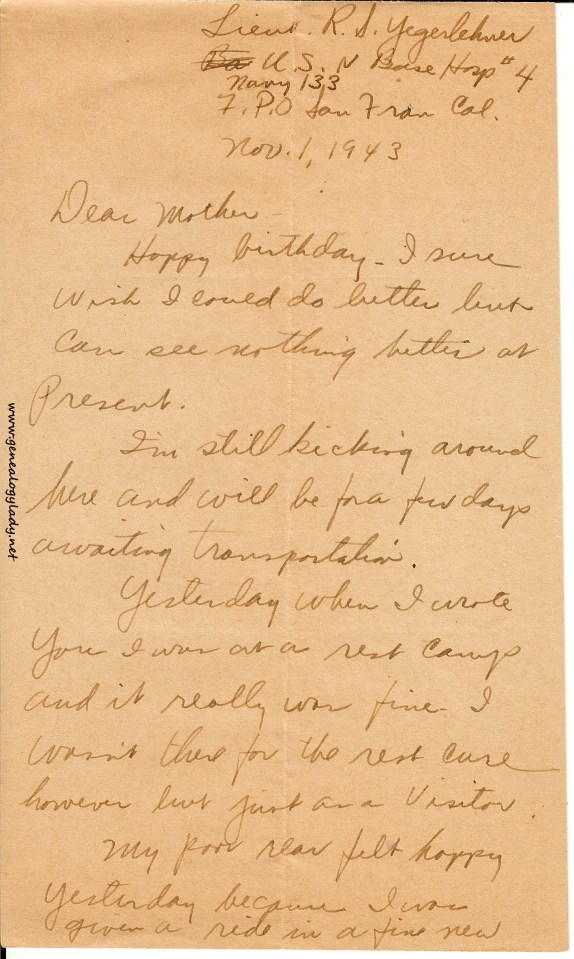 Lieut. R. S. Yegerlehner
U.S. N Base Hosp # 4
Navy 133
F.P.O San Fran Cal.
Nov. 1, 1943
Dear Mother -
Happy birthday - I sure
wish I could do better but
can see nothing better at
Present.
I'm still kicking around
here and will be for a few days
awaiting transportation.
Yesterday when I wrote
you I was at a rest camp
and it really was fine - I
wasn't there for the rest cure
however but just as a visitor.
My poor rear felt happy
yesterday because I was
given a ride in a fine new
www.genealogylady.net